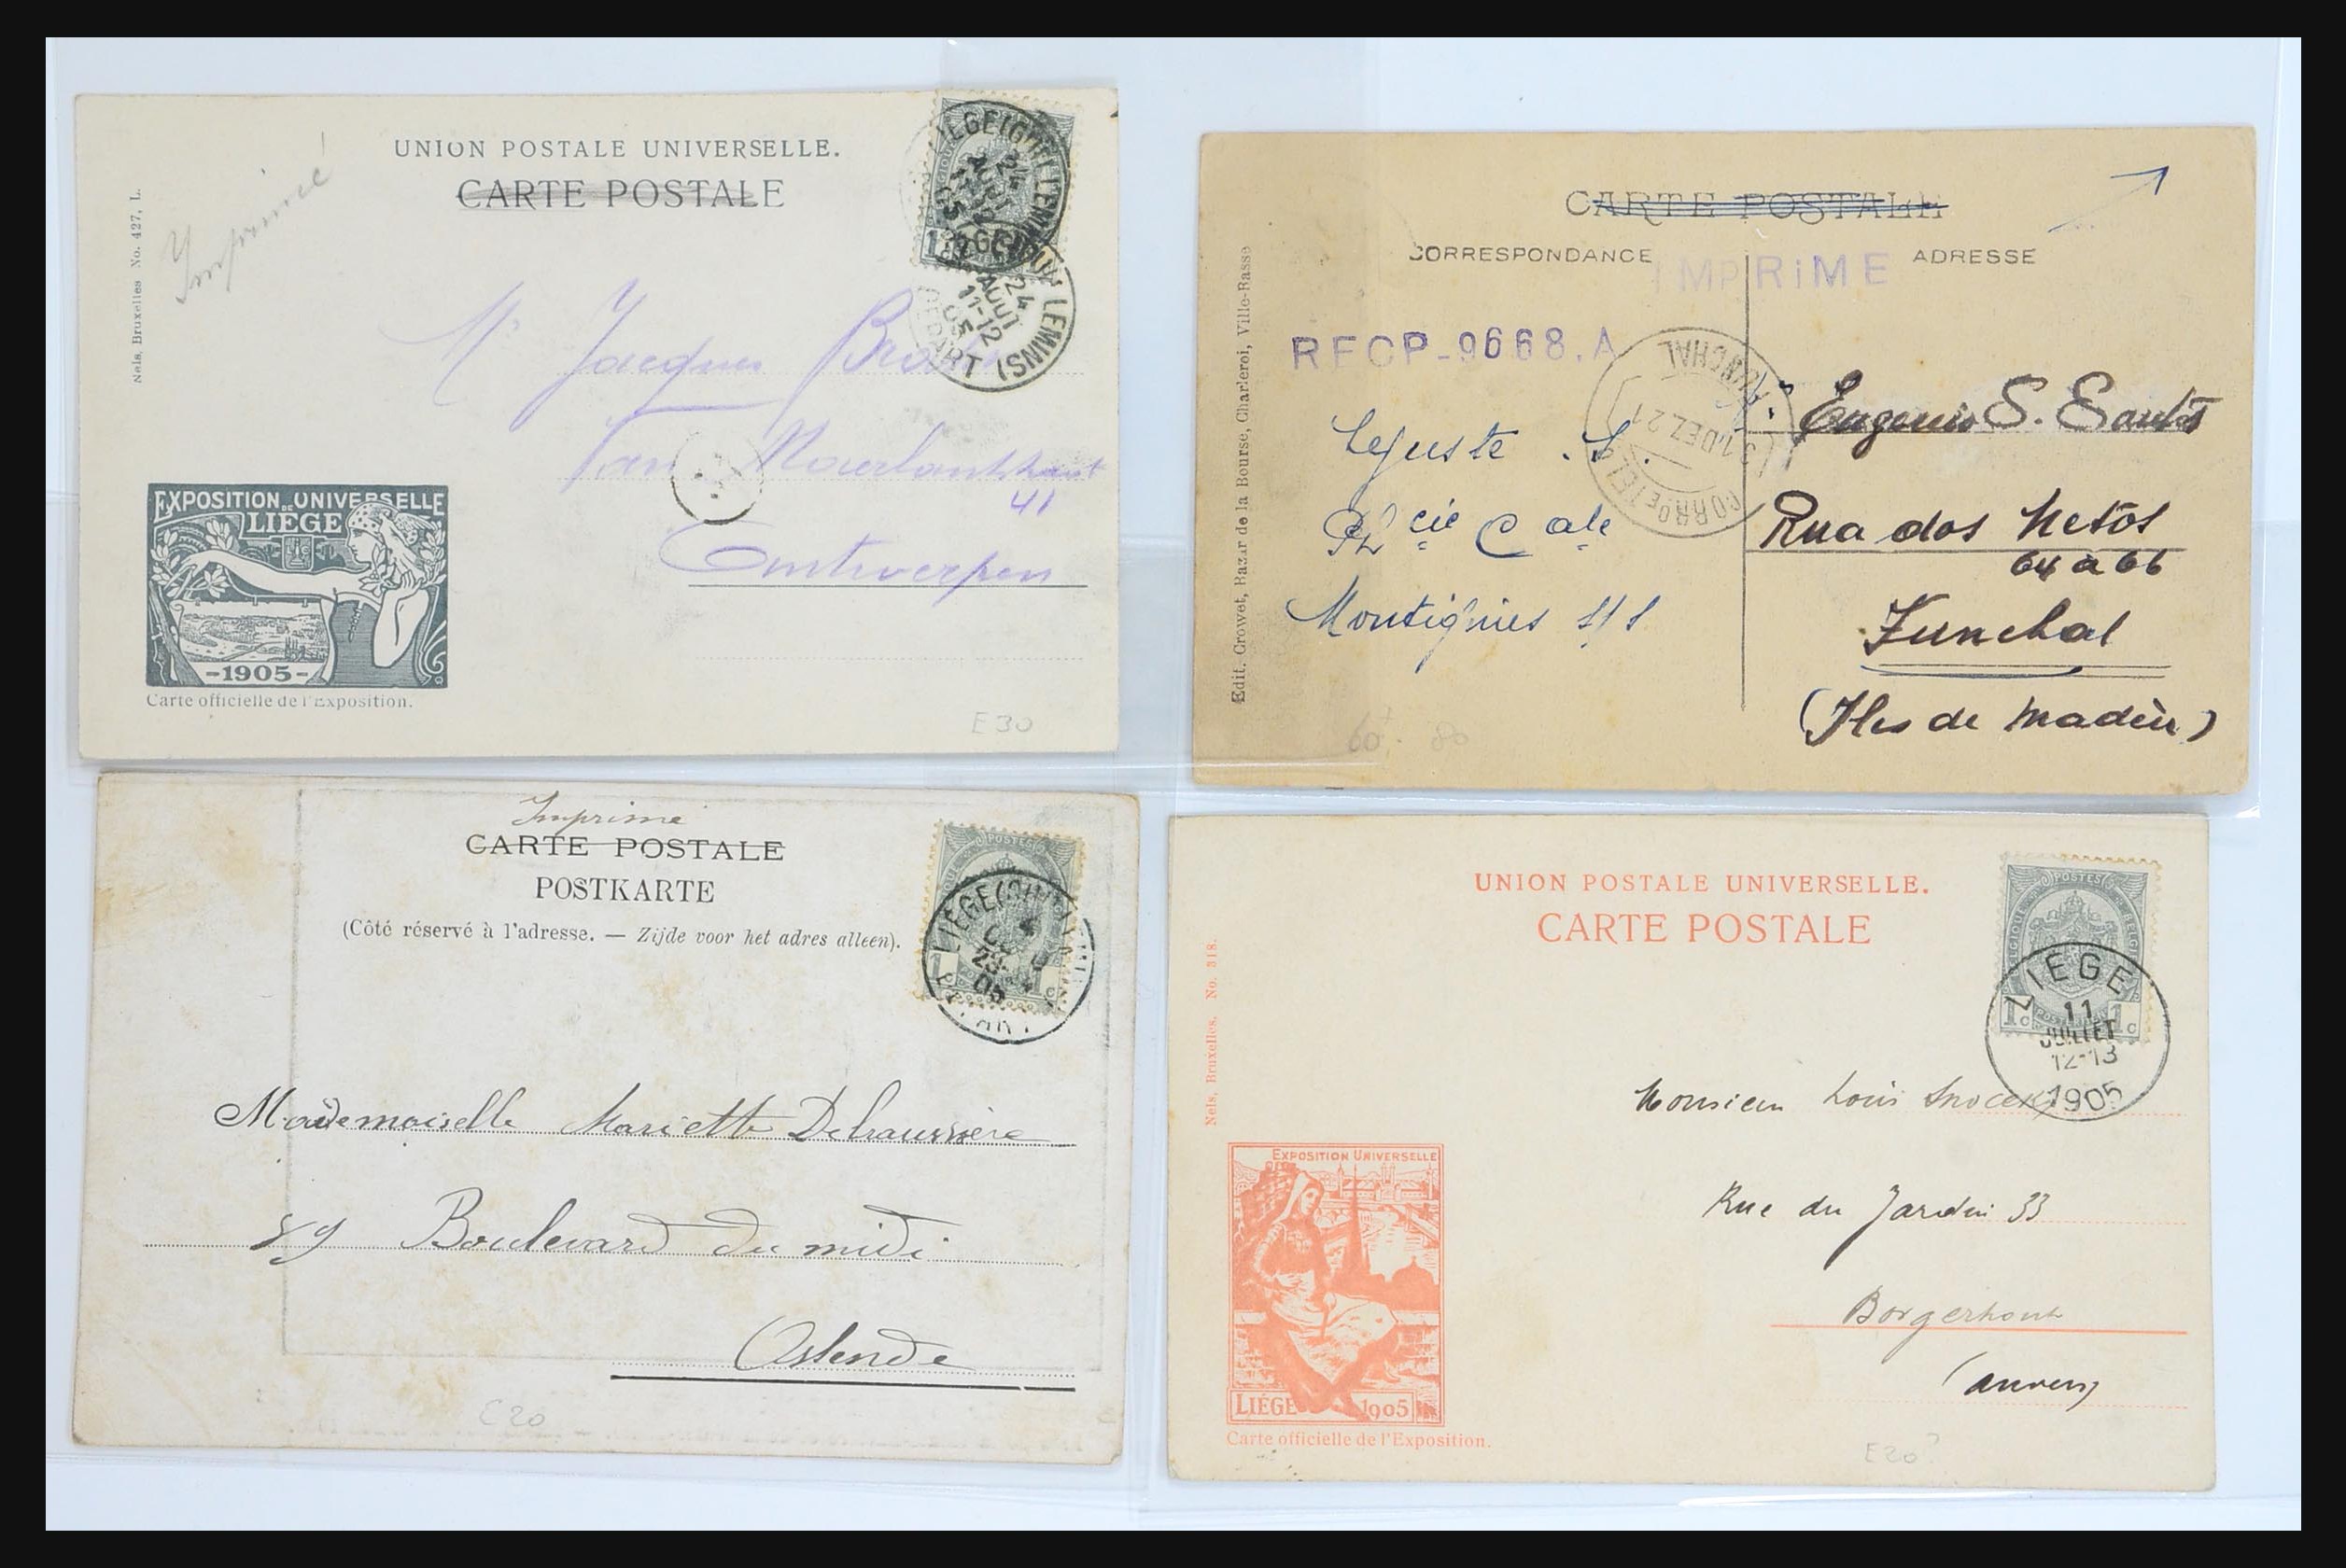 UNION POSTALE UNIVERSELLE.
CARTE POSTALE
Imprimé
Nels, Bruxelles No. 427, L.
24
AOUT
11-12
05
DEPART
Mr Jacques
41
Antwerpen
EXPOSITION UNIVERSELLE
DE
LIÉGE
-1905-
Carte officielle de l'Exposition.
E30
CARTE POSTALE
CORRESPONDANCE
ADRESSE
IMPRiME
RECP-9668.A
FUNCHAL
31.DEZ.21
Edit. Crowet, Bazar de la Bourse, Charleroi, Ville-Basse
Lejuste . S.
Phcie Cale
Montignies S/S
Eugenio S. Santos
Rua dos Netos
64 a 66
Funchal
(Iles de Madère)
60 - 80
Imprimé
CARTE POSTALE
POSTKARTE
(Côté réservé à l'adresse. — Zijde voor het adres alleen).
POSTES
1c
Mademoiselle Mariette Dehaussière
89 Boulevard du midi
Ostende
E20
UNION POSTALE UNIVERSELLE.
CARTE POSTALE
POSTES
1c 1c
LIÉGE
11
JUILLET
12-13
1905
Nels, Bruxelles. No. 318.
Monsieur Louis Snoeck
Rue du Jardin 33
Borgerhout
(Anvers)
EXPOSITION UNIVERSELLE
LIÉGE 1905
Carte officielle de l'Exposition.
E20?